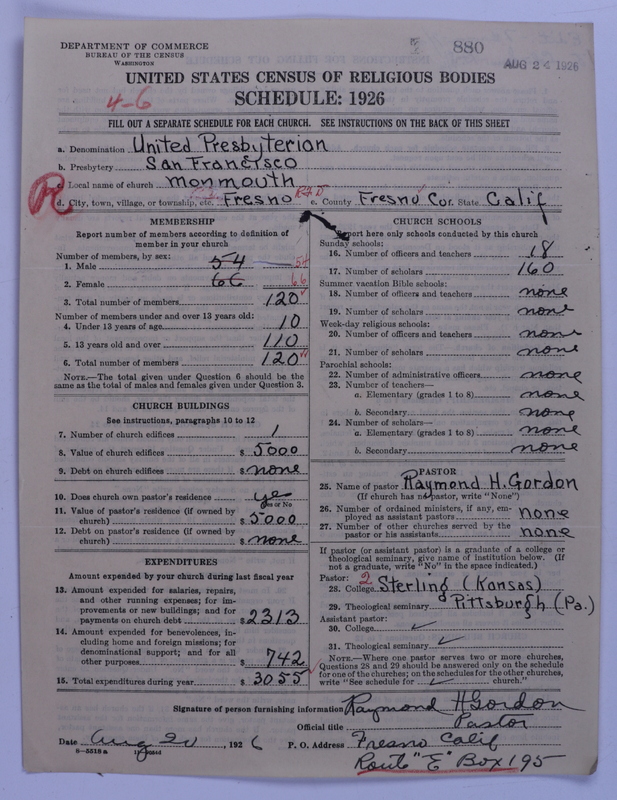 DEPARTMENT OF COMMERCE
BUREAU OF THE CENSUS
WASHINGTON
880
AUG 24 1926
UNITED STATES CENSUS OF RELIGIOUS BODIES
4-6
SCHEDULE: 1926
FILL OUT A SEPARATE SCHEDULE FOR EACH CHURCH. SEE INSTRUCTIONS ON THE BACK OF THIS SHEET
a. Denomination United Presbyterian
b. Presbytery San Francisco
R c. Local name of church monmouth
d. City, town, village, or township, etc. Fresno e. County Fresno Cor. State Calif
MEMBERSHIP
Report number of members according to definition of
member in your church
Number of members, by sex:
1. Male 54 54
2. Female 66 66
3. Total number of members 120
Number of members under and over 13 years old:
4. Under 13 years of age 10
5. 13 years old and over 110
6. Total number of members 120
NOTE.—The total given under Question 6 should be the
same as the total of males and females given under Question 3.
CHURCH BUILDINGS
See instructions, paragraphs 10 to 12
7. Number of church edifices 1
8. Value of church edifices $ 5000
9. Debt on church edifices $ none
10. Does church own pastor's residence yes
Yes or No
11. Value of pastor's residence (if owned by
church) $ 5000
12. Debt on pastor's residence (if owned by
church) $ none
EXPENDITURES
Amount expended by your church during last fiscal year
13. Amount expended for salaries, repairs,
and other running expenses; for im-
provements or new buildings; and for
payments on church debt $ 2313
14. Amount expended for benevolences, in-
cluding home and foreign missions; for
denominational support; and for all
other purposes $ 742
15. Total expenditures during year $ 3055
CHURCH SCHOOLS
Report here only schools conducted by this church
Sunday schools:
16. Number of officers and teachers 18
17. Number of scholars 160
Summer vacation Bible schools:
18. Number of officers and teachers none
19. Number of scholars none
Week-day religious schools:
20. Number of officers and teachers none
21. Number of scholars none
Parochial schools:
22. Number of administrative officers none
23. Number of teachers—
a. Elementary (grades 1 to 8) none
b. Secondary none
24. Number of scholars—
a. Elementary (grades 1 to 8) none
b. Secondary none
PASTOR
25. Name of pastor Raymond H. Gordon
(If church has no pastor, write "None")
26. Number of ordained ministers, if any, em-
ployed as assistant pastors none
27. Number of other churches served by the
pastor or his assistants none
If pastor (or assistant pastor) is a graduate of a college or
theological seminary, give name of institution below. (If
not a graduate, write "No" in the space indicated.)
Pastor: 2
28. College Sterling (Kansas)
29. Theological seminary Pittsburgh (Pa.)
Assistant pastor:
30. College
31. Theological seminary
NOTE.—Where one pastor serves two or more churches,
Questions 28 and 29 should be answered only on the schedule
for one of the churches; on the schedules for the other churches,
write "See schedule for church."
Signature of person furnishing information Raymond H Gordon
Official title Pastor
Date Aug 20, 1926 P. O. Address Fresno Calif
8—5518 a Route "E" Box 195